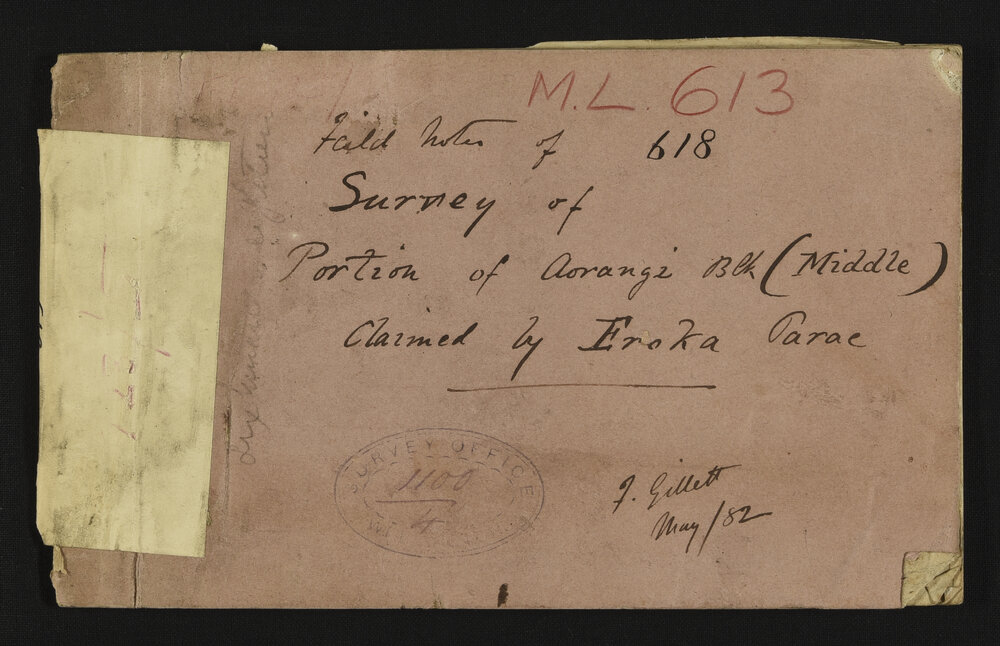 M.L. 613
Feild Notes of 618
Survey of
Portion of Aorangi Blk (Middle)
Claimed by Eroka Parae
SURVEY OFFICE
1100
4
F. Gillett
May/82